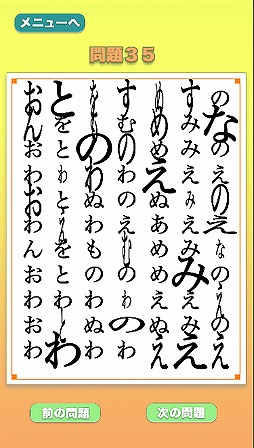 メニューへ
問題35
のなのえのえなのえ
すみみええみみえみえ
めえぬあめめえぬえ
すむのわのえのわのわ
のわぬわものわぬわ
とをとわとをとわわ
おんおわおわんおわおわ
前の問題
次の問題